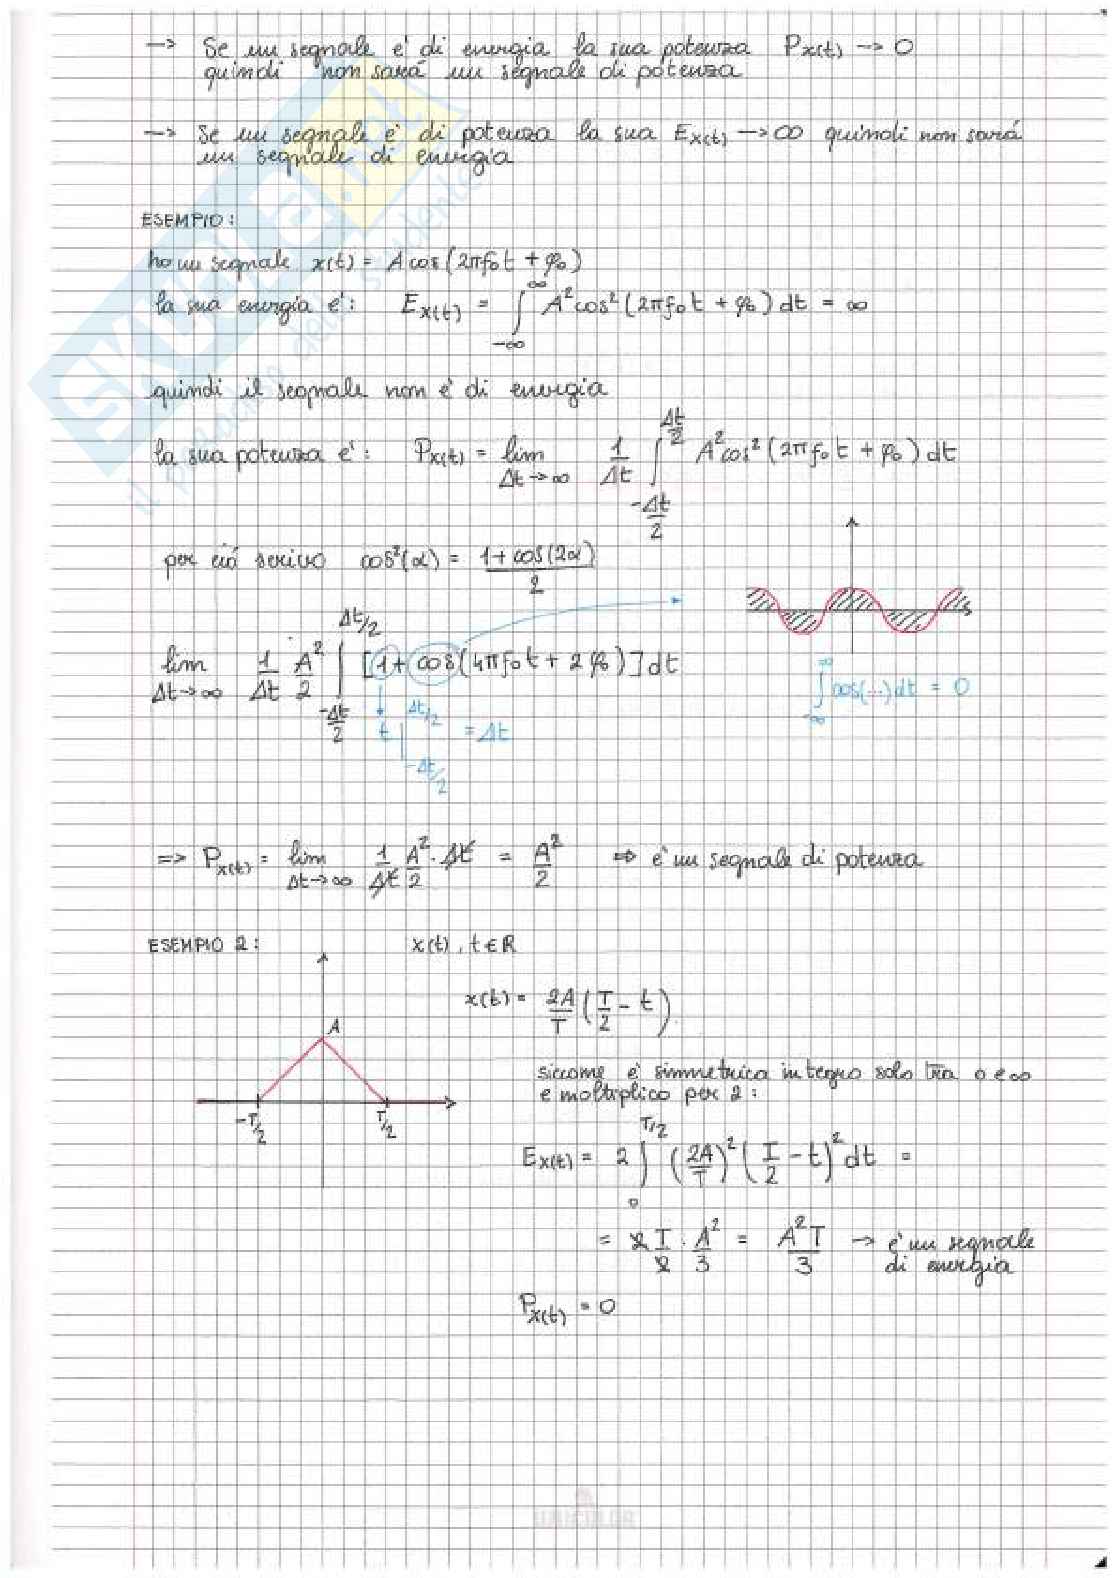 -> Se un segnale e' di energia la sua potenza Px(t) -> 0
quindi non sará un segnale di potenza
-> Se un segnale e' di potenza la sua Ex(t) -> ∞ quindi non sará
un segnale di energia
ESEMPIO:
ho un segnale x(t) = A cos(2πf₀t + φ₀)
la sua energia e': Ex(t) = ∫_{-∞}^{∞} A² cos²(2πf₀t + φ₀) dt = ∞
quindi il segnale non e' di energia
la sua potenza e': Px(t) = lim_{Δt→∞} 1/Δt ∫_{-Δt/2}^{Δt/2} A² cos²(2πf₀t + φ₀) dt
per ció scrivo cos²(α) = (1 + cos(2α))/2
lim_{Δt→∞} 1/Δt A²/2 ∫_{-Δt/2}^{Δt/2} [1 + cos(4πf₀t + 2φ₀)] dt
∫_{-∞}^{∞} cos(...) dt = 0
t |_{-Δt/2}^{Δt/2} = Δt
=> Px(t) = lim_{Δt→∞} 1/Δt A²/2 · Δt = A²/2 => e' un segnale di potenza
ESEMPIO 2: x(t), t ∈ R
x(t) = 2A/T (T/2 - t)
A
-T/2 T/2
siccome e' simmetrica integro solo tra 0 e ∞
e moltiplico per 2:
Ex(t) = 2 ∫_{0}^{T/2} (2A/T)² (T/2 - t)² dt =
= 2 T/2 · A²/3 = A²T/3 -> e' un segnale
di energia
Px(t) = 0
SKUOLA.net
il paradiso dello studente